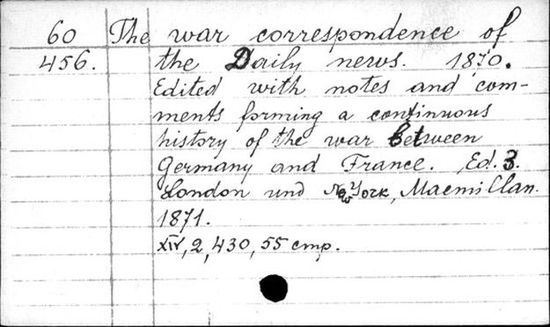 60 The war correspondence of
456. the Daily news. 1870.
Edited with notes and com-
ments forming a continuous
history of the war between
Germany and France. Ed. 3.
London und New York, Macmillan.
1871.
XIV, 2, 430, 55 стр.